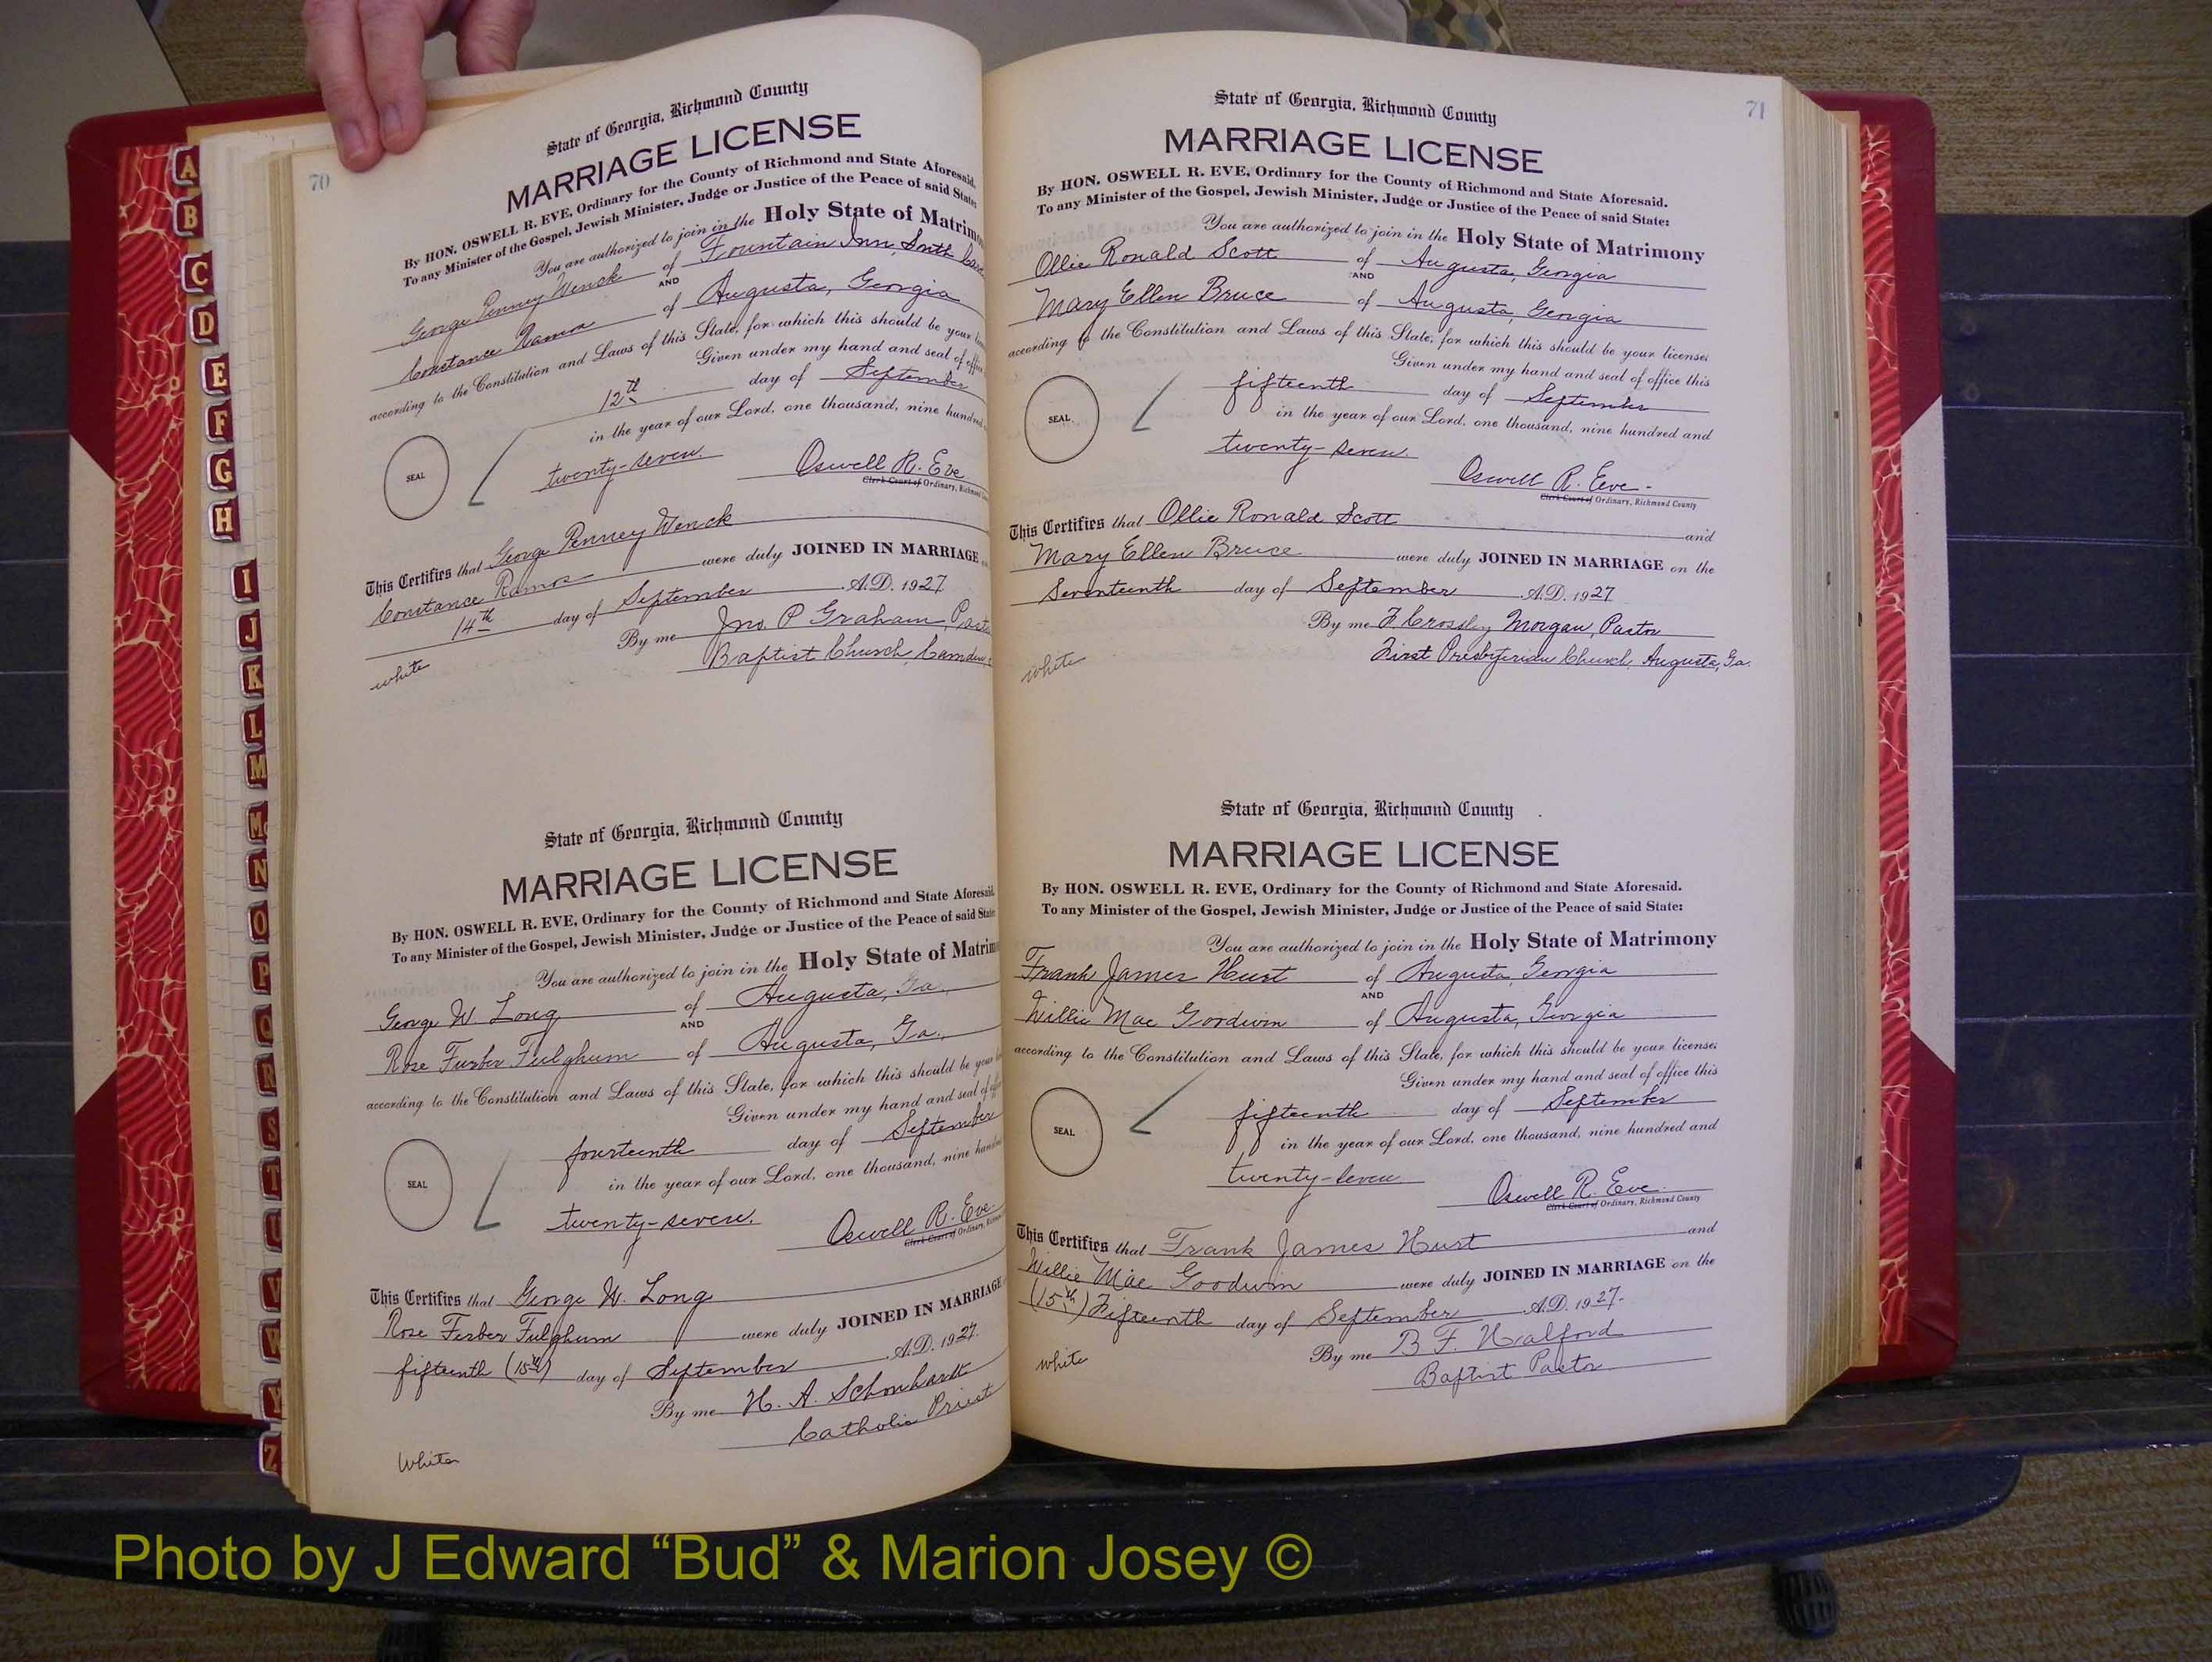 70
State of Georgia, Richmond County
MARRIAGE LICENSE
By HON. OSWELL R. EVE, Ordinary for the County of Richmond and State Aforesaid.
To any Minister of the Gospel, Jewish Minister, Judge or Justice of the Peace of said State:
You are authorized to join in the Holy State of Matrimo
George Penney Wenck of Fountain Inn, South
AND
Constance Ramos of Augusta, Georgia
according to the Constitution and Laws of this State, for which this should be your
Given under my hand and seal of office
12th day of September
in the year of our Lord, one thousand, nine hundred
SEAL
twenty-seven.
Oswell R. Eve
Clerk Court of Ordinary, Richmond
This Certifies that George Penney Wenck
Constance Ramos were duly JOINED IN MARRIAGE
14th day of September A.D. 1927
By me Jno. P Graham,
Baptist Church, Camden
white
State of Georgia, Richmond County
MARRIAGE LICENSE
By HON. OSWELL R. EVE, Ordinary for the County of Richmond and State Aforesaid.
To any Minister of the Gospel, Jewish Minister, Judge or Justice of the Peace of said State:
You are authorized to join in the Holy State of Matrim
George W Long of Augusta, Ga.
AND
Rose Furber Fulghum of Augusta, Ga.
according to the Constitution and Laws of this State, for which this should be your
Given under my hand and seal of
fourteenth day of September
in the year of our Lord, one thousand, nine
SEAL
twenty-seven.
Oswell R. Eve
Clerk Court of Ordinary,
This Certifies that George W. Long
Rose Ferber Fulghum were duly JOINED IN MARRIAGE
fifteenth (15th) day of September A.D. 1927.
By me H. A. Schonhardt
Catholic Priest
White
71
State of Georgia, Richmond County
MARRIAGE LICENSE
By HON. OSWELL R. EVE, Ordinary for the County of Richmond and State Aforesaid.
To any Minister of the Gospel, Jewish Minister, Judge or Justice of the Peace of said State:
You are authorized to join in the Holy State of Matrimony
Ollie Ronald Scott of Augusta, Georgia
AND
Mary Ellen Bruce of Augusta, Georgia
according to the Constitution and Laws of this State, for which this should be your license;
Given under my hand and seal of office this
fifteenth day of September
in the year of our Lord, one thousand, nine hundred and
SEAL.
twenty-seven
Oswell R. Eve-
Clerk Court of Ordinary, Richmond County
This Certifies that Ollie Ronald Scott and
Mary Ellen Bruce were duly JOINED IN MARRIAGE on the
Seventeenth day of September A.D. 1927
By me F. Crossley Morgan, Pastor
First Presbyterian Church, Augusta, Ga.
white
State of Georgia, Richmond County
MARRIAGE LICENSE
By HON. OSWELL R. EVE, Ordinary for the County of Richmond and State Aforesaid.
To any Minister of the Gospel, Jewish Minister, Judge or Justice of the Peace of said State:
You are authorized to join in the Holy State of Matrimony
Frank James Hust of Augusta, Georgia
AND
Willie Mae Goodwin of Augusta, Georgia
according to the Constitution and Laws of this State, for which this should be your license;
Given under my hand and seal of office this
fifteenth day of September
in the year of our Lord, one thousand, nine hundred and
SEAL
twenty-seven
Oswell R. Eve.
Clerk Court of Ordinary, Richmond County
This Certifies that Frank James Hust and
Willie Mae Goodwin were duly JOINED IN MARRIAGE on the
(15th) Fifteenth day of September A.D. 1927.
By me B F. Halford
Baptist Pastor
white
A
B
C
D
E
F
G
H
I
J
K
L
M
Mc
N
O
P
Q
R
S
T
U
V
W
Y
Z
Photo by J Edward “Bud” & Marion Josey ©